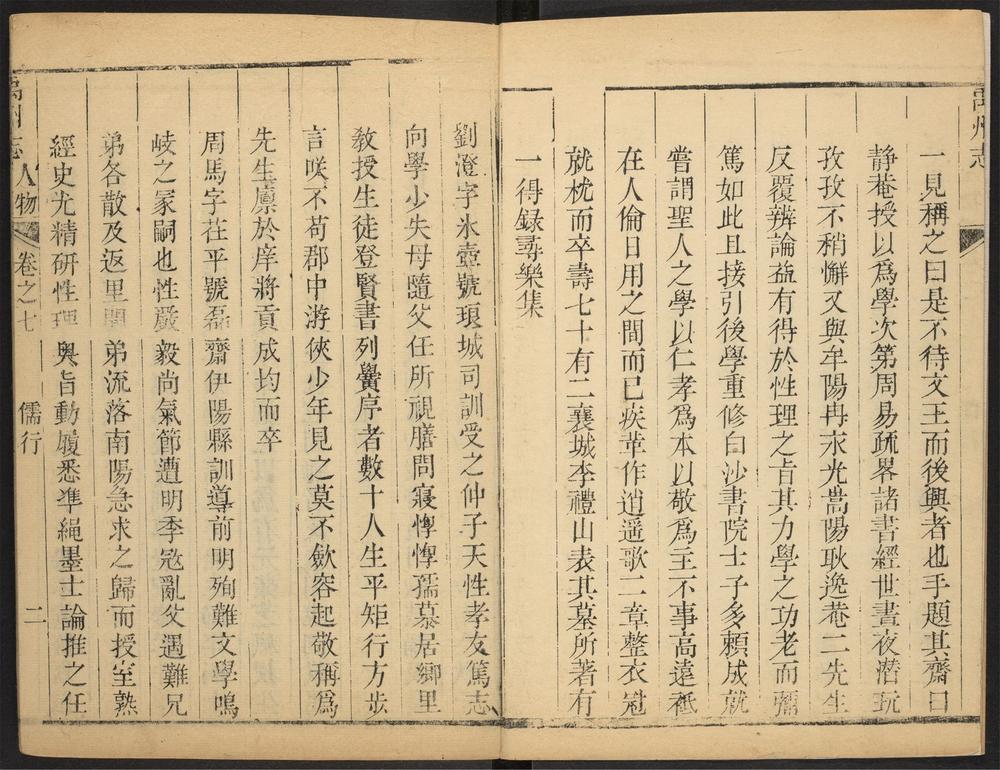 禹州志
一見稱之曰是不待文王而後興者也手題其齋曰
靜菴授以爲學次第周易疏畧諸書經世晝夜潛玩
孜孜不稍懈又與牟陽冉永光嵩陽耿逸菴二先生
反覆辨論益有得於性理之旨其力學之功老而彌
篤如此且接引後學重修白沙書院士子多賴成就
嘗謂聖人之學以仁孝爲本以敬爲主不事高遠秪
在人倫日用之間而已疾革作逍遥歌二章整衣冠
就枕而卒壽七十有二襄城李禮山表其墓所著有
一得録尋樂集
劉澄字氷壺號琅城司訓受之仲子天性孝友篤志
向學少失母隨父任所視膳問寢惸惸孺慕居鄉里
敎授生徒登賢書列黌序者數十人生平矩行方步
言咲不苟郡中游俠少年見之莫不歛容起敬稱爲
先生廪於庠將貢成均而卒
周馬字在平號磊齋伊陽縣訓導前明殉難文學鳴
岐之冢嗣也性嚴毅尚氣節遭明季冦亂父遇難兄
弟各散及返里聞弟流落南陽急求之歸而授室熟
經史尤精研性理奥旨動履悉準繩墨士論推之任
禹州志 人物 卷之七 儒行 二